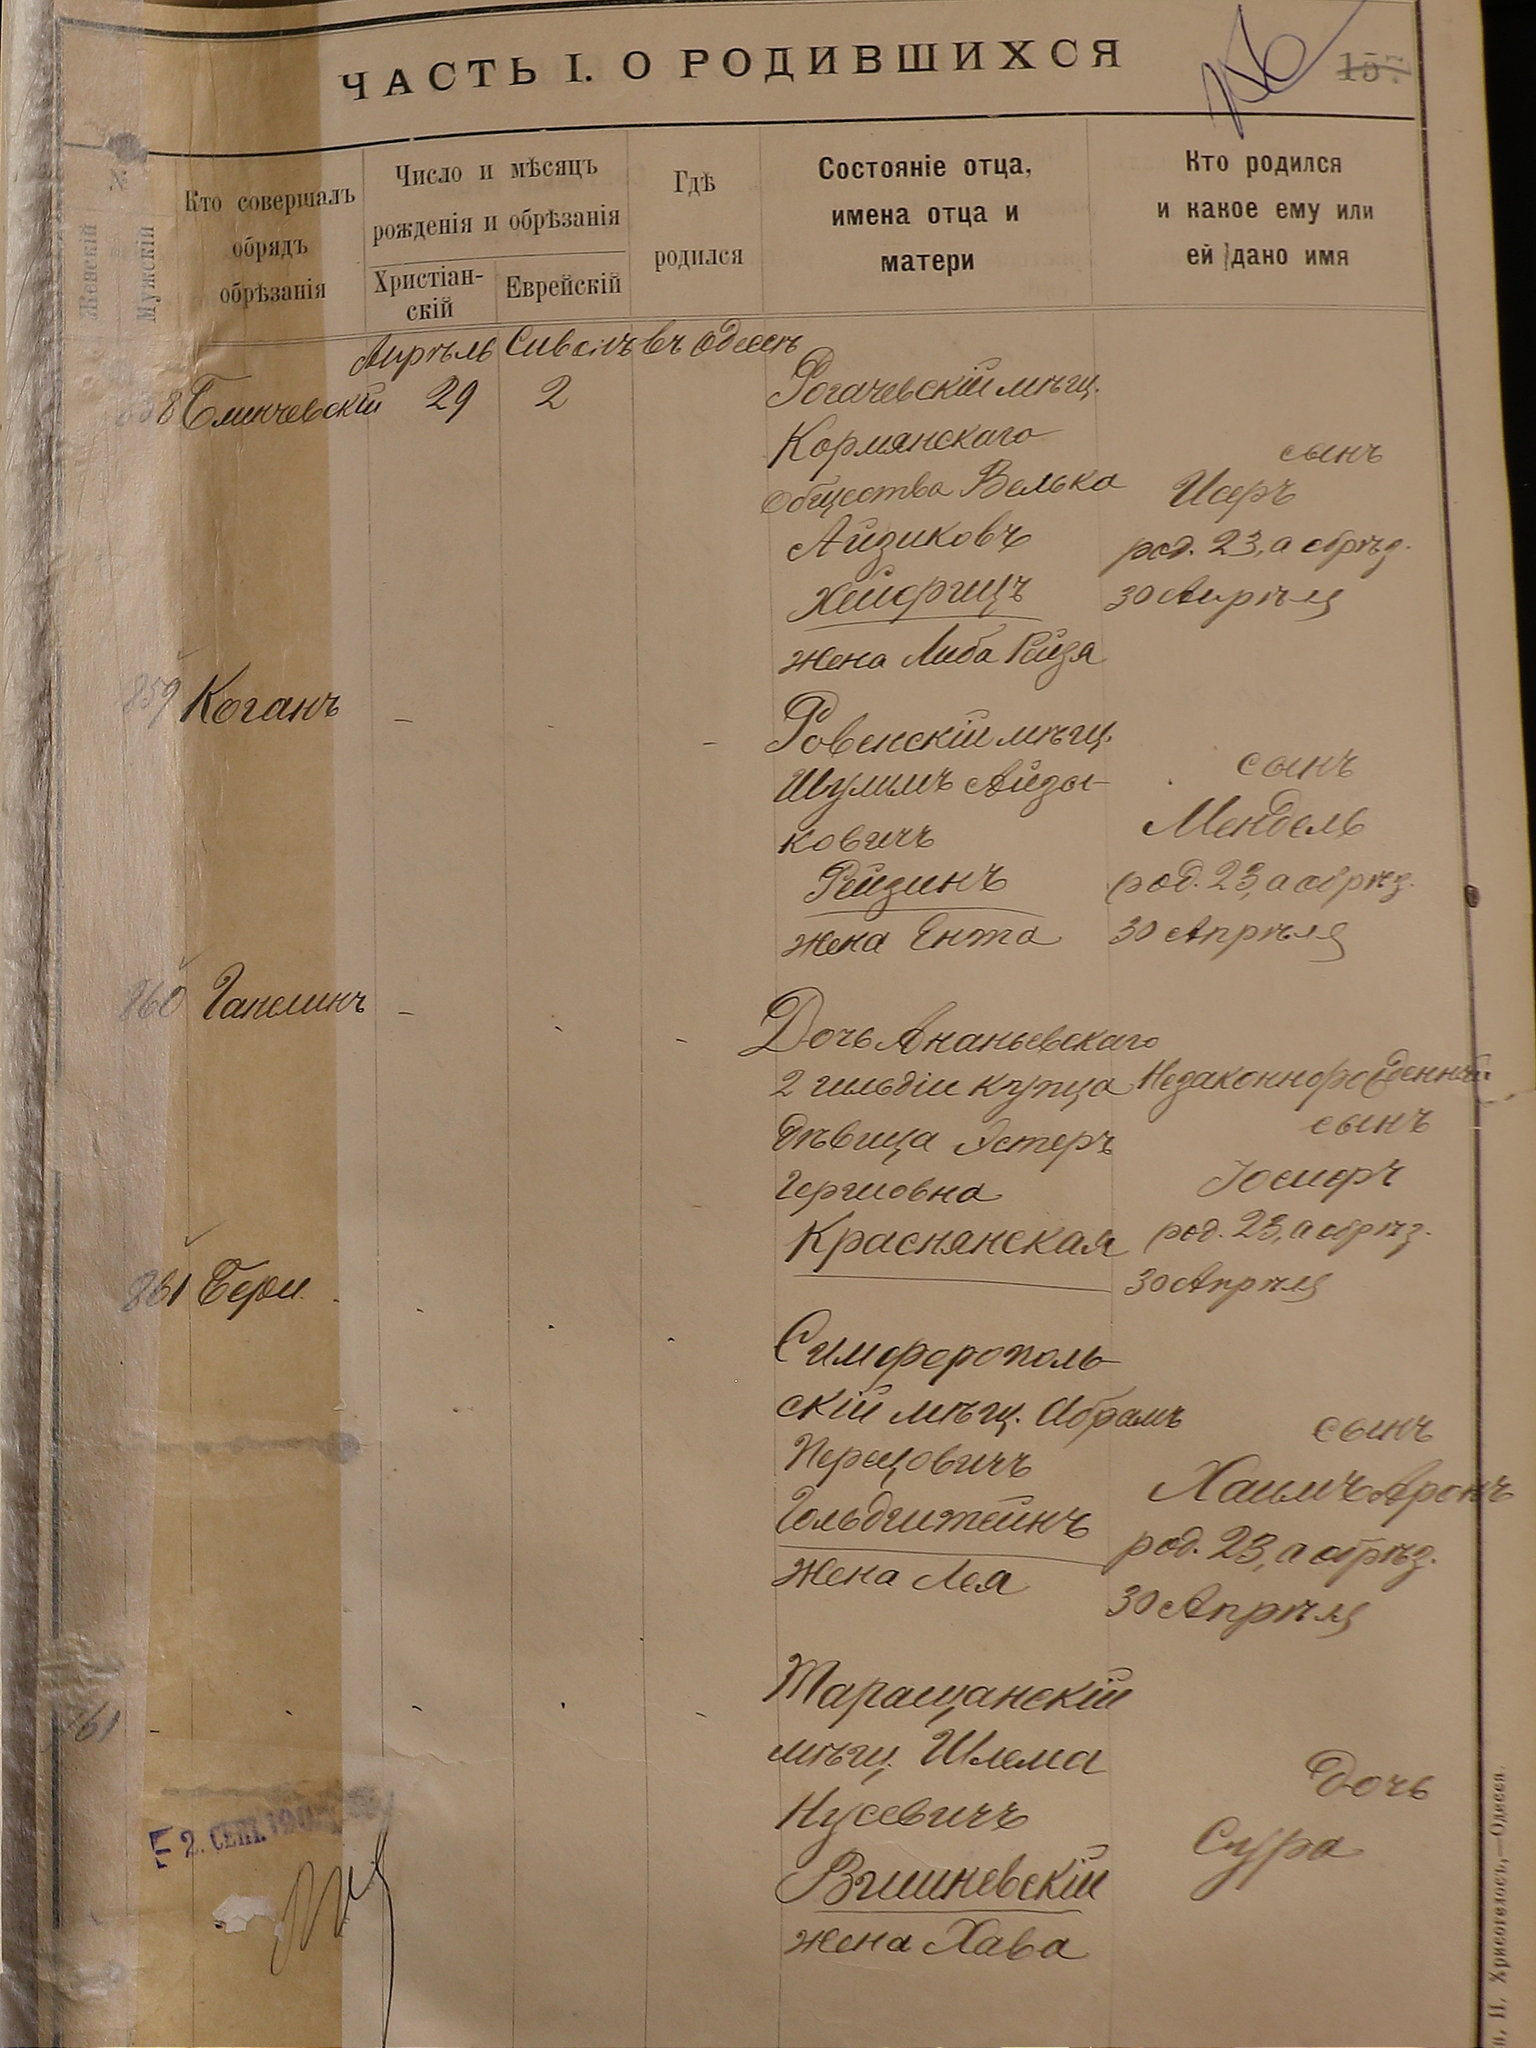 ЧАСТЬ I. О РОДИВШИХСЯ
157
№
Женскій
Мужскій
Кто совершалъ
обрядъ
обрѣзанія
Число и мѣсяцъ
рожденія и обрѣзанія
Христіан-
скій
Еврейскій
Гдѣ
родился
Состояніе отца,
имена отца и
матери
Кто родился
и какое ему или
ей дано имя
Апрѣль Сивонъ въ Одессѣ
858 Блинчевскій 29 2
Рогачевскій мѣщ.
Кормянскаго
общества Велька
Айзиковъ
Хейфицъ
жена Либа Рейзя
сынъ
Исеръ
род. 23, а обрѣз.
30 Апрѣля
859 Коганъ - - -
Ровенскій мѣщ.
Шулимъ Айзы-
ковичъ
Рейзинъ
жена Ента
сынъ
Мендель
род. 23, а обрѣз.
30 Апрѣля
860 Ганелинъ - - -
Дочь Ананьевскаго
2 гильдіи купца
дѣвица Эстеръ
Гершовна
Краснянская
Незаконнорожденный
сынъ
Іосифъ
род. 23, а обрѣз.
30 Апрѣля
861 - - -
Симферополь-
скій мѣщ. Абрамъ
Перецовичъ
Гольдштейнъ
жена Лея
сынъ
Хаимъ Аронъ
род. 23, а обрѣз.
30 Апрѣля
761 - - - -
Таращанскій
мѣщ. Шлема
Нусевичъ
Вишневскій
жена Хава
дочь
Сура
2. СЕН.
П. Хрисогелосъ,—Одесса.